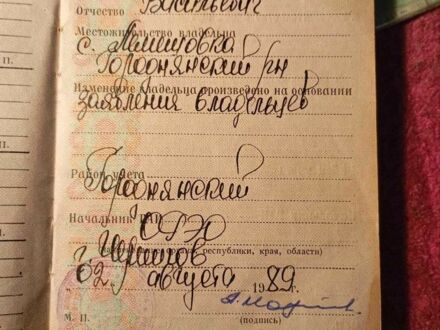 Отчество Васильевич
Местожительство владельца
с.
Городнянский рн
Изменение владельца произведено на основании
заявления владельцев
Район учета
Городнянский
Начальник ГАИ
г. Чернигов
республики, края, области)
02 августа 1989 г.
М. П.
(подпись)